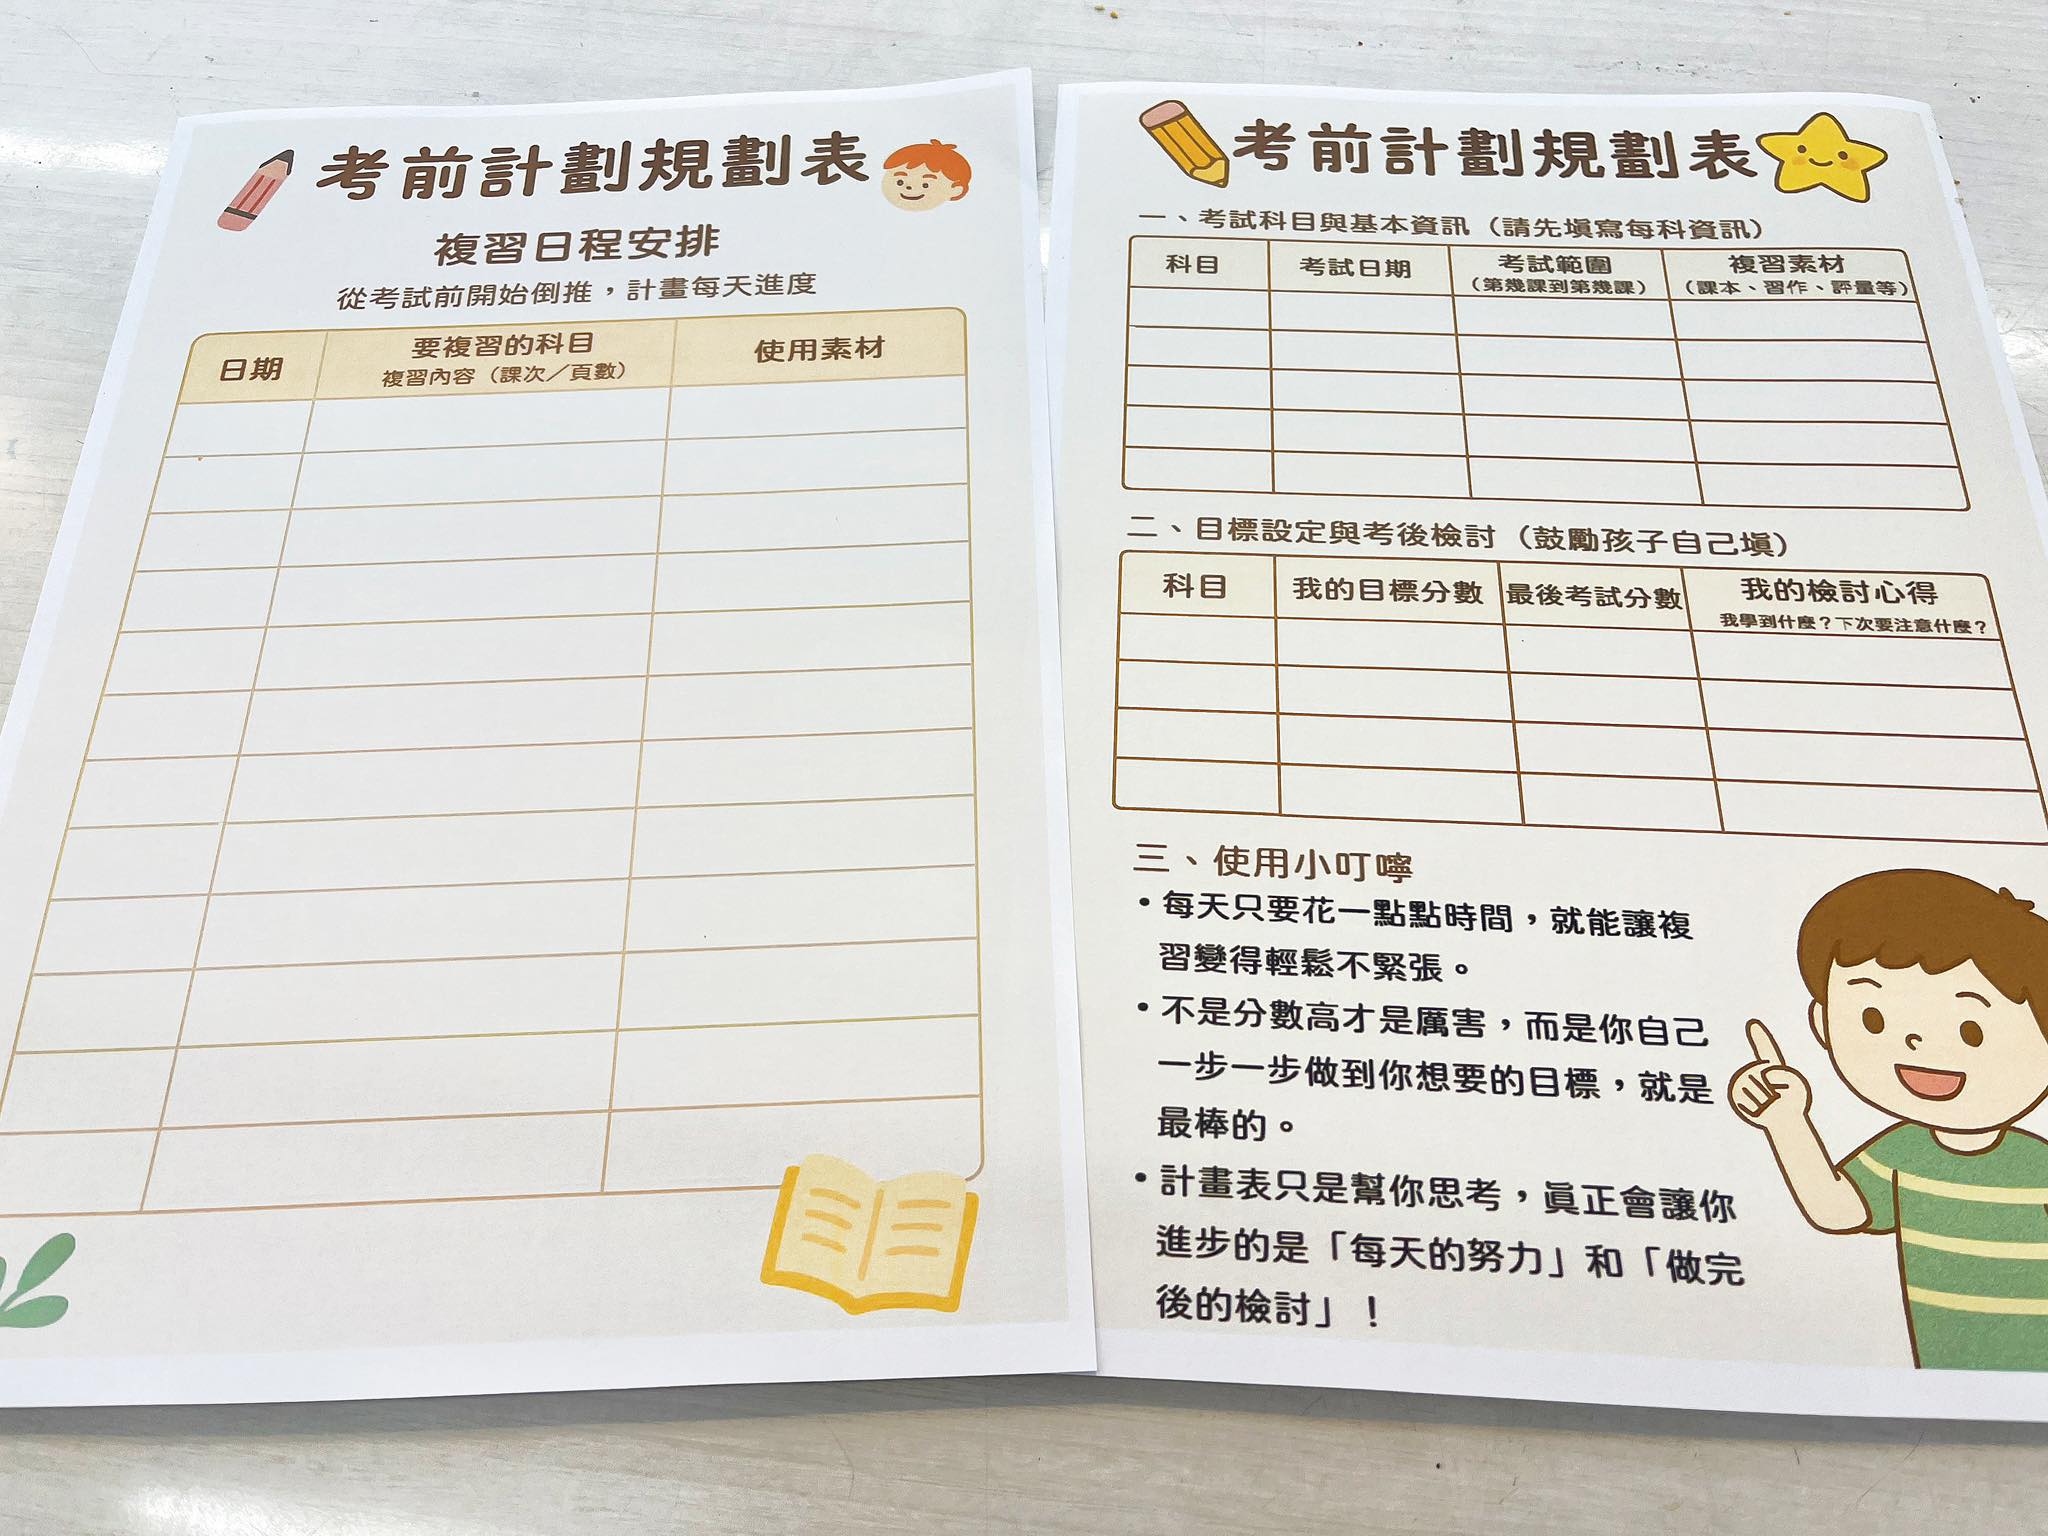 考前計劃規劃表
複習日程安排
從考試前開始倒推，計畫每天進度
日期
要複習的科目
複習內容（課次／頁數）
使用素材
考前計劃規劃表
一、考試科目與基本資訊（請先填寫每科資訊）
科目
考試日期
考試範圍
（第幾課到第幾課）
複習素材
（課本、習作、評量等）
二、目標設定與考後檢討（鼓勵孩子自己填）
科目
我的目標分數
最後考試分數
我的檢討心得
我學到什麼？下次要注意什麼？
三、使用小叮嚀
•每天只要花一點點時間，就能讓複
習變得輕鬆不緊張。
•不是分數高才是厲害，而是你自己
一步一步做到你想要的目標，就是
最棒的。
•計畫表只是幫你思考，真正會讓你
進步的是「每天的努力」和「做完
後的檢討」！